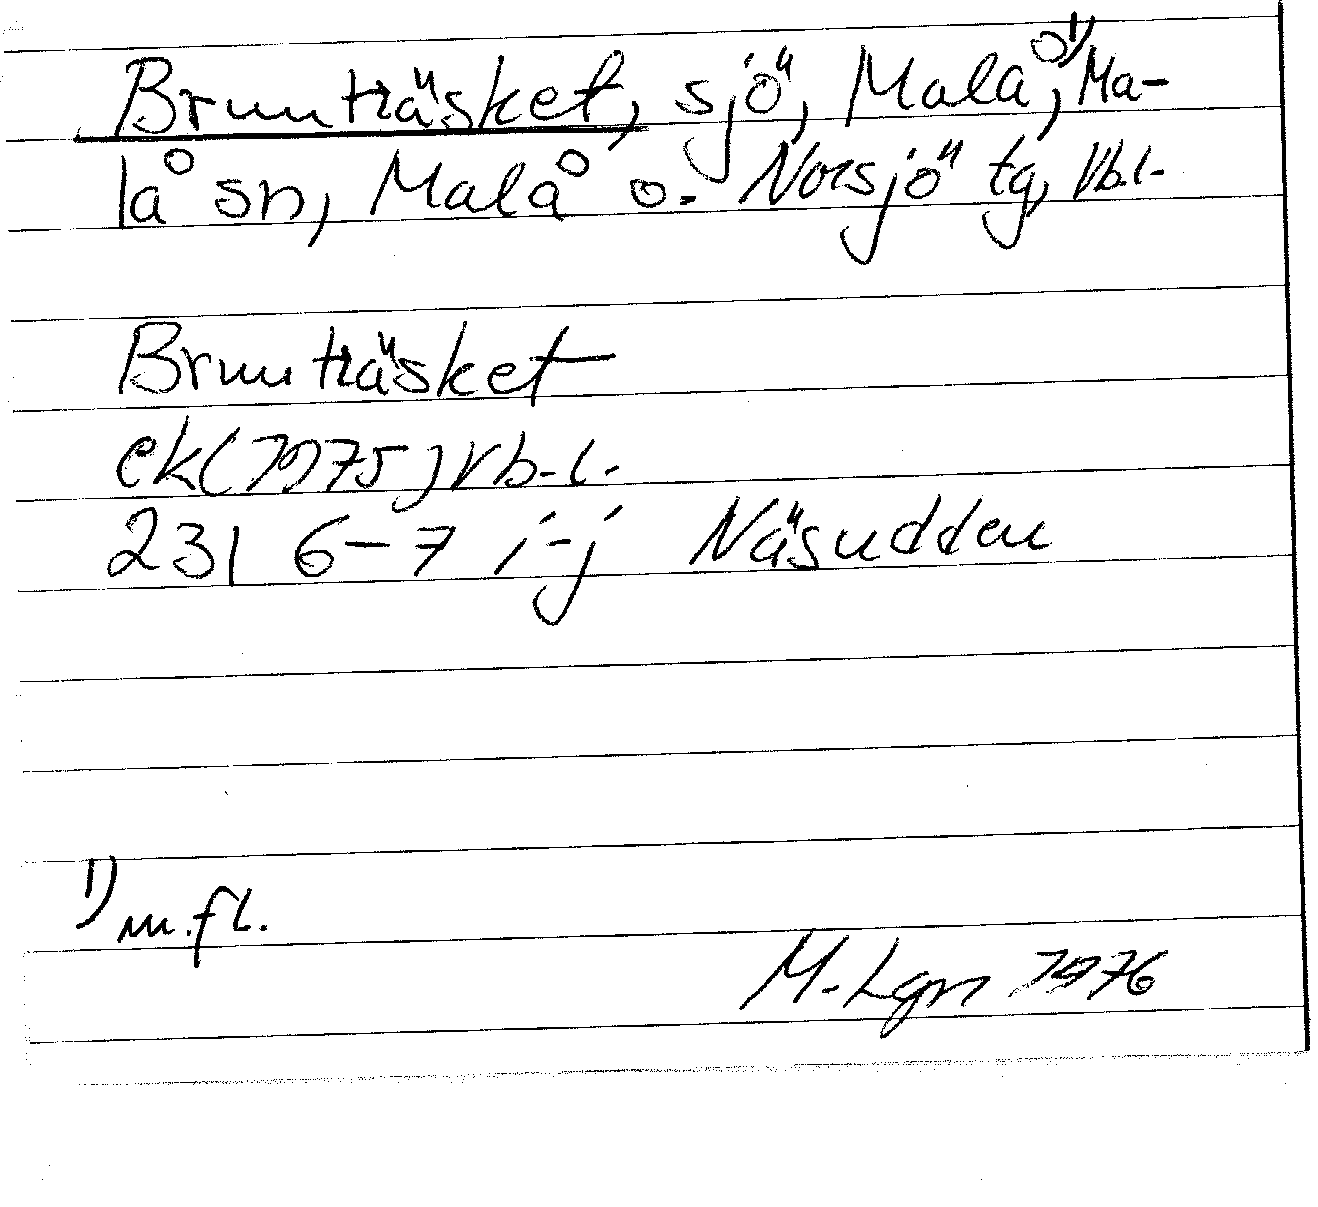 Brunträsket, sjö, Malå,¹⁾ Ma-
lå sn, Malå o. Norsjö tg, Vb.l.
Brunträsket
ek (1975) Vb.l.
23I 6-7 i-j Näsudden
1) m.fl.
M. Lgn 1976